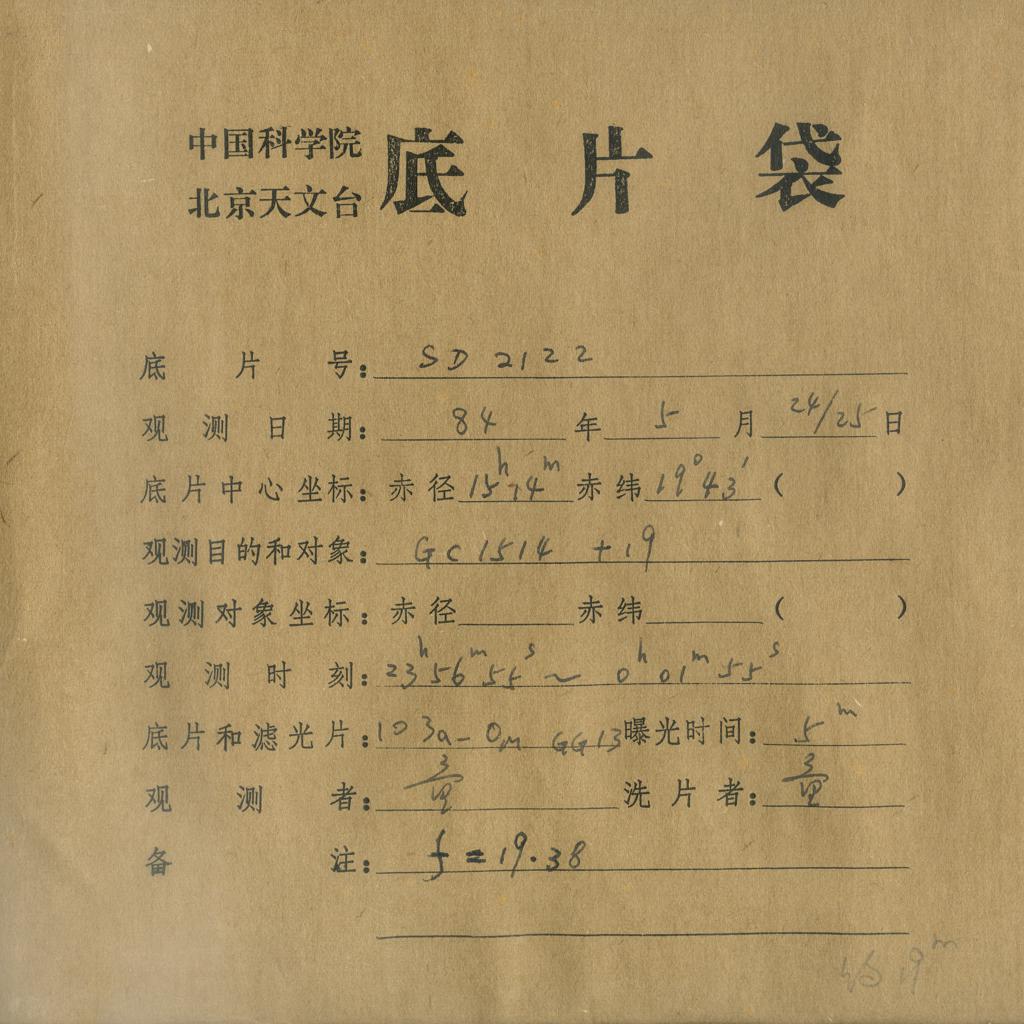 中国科学院
北京天文台
底片袋
底片号：SD 2122
观测日期：84年5月24/25日
底片中心坐标：赤径15h14m赤纬19°43′（ ）
观测目的和对象：GC1514 +19
观测对象坐标：赤径 赤纬 （ ）
观测时刻：23h56m55s～0h01m55s
底片和滤光片：103a-O GG13曝光时间：5m
观测者：
洗片者：
备注：f=19.38
19m